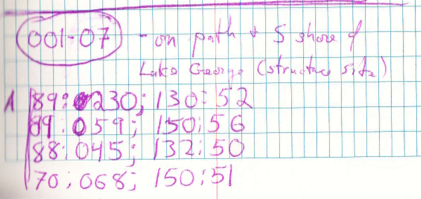 001-07 - on path & S shore of
Lake George (structure site)
A 89:0230; 130:52
89:059; 150:56
88:045; 132:50
70;068; 150:51